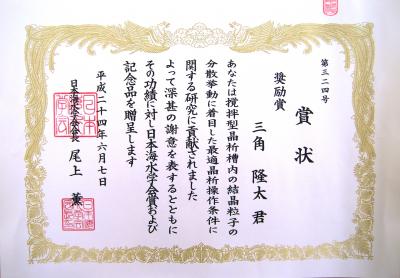 第三二四号
賞状
奨励賞
三角 隆太 君
あなたは撹拌型晶析槽内の結晶粒子の
分散挙動に着目した最適晶析操作条件に
関する研究に貢献されました
よって深甚の謝意を表するとともに
その功績に対し日本海水学会賞および
記念品を贈呈します
平成二十四年六月七日
日本海水学会会長 尾上 薫